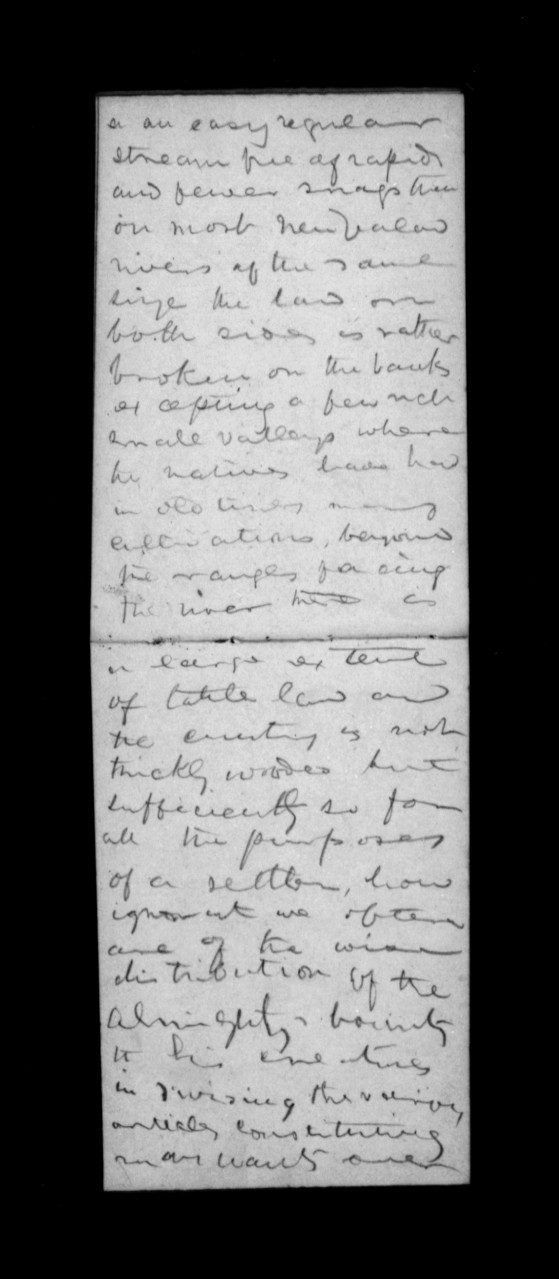 is an easy regular
stream free of rapids
and fewer snags than
on most New Zealand
rivers of the same
size the land on
both sides is rather
broken on the banks
excepting a few rich
small valleys where
the natives have had
in old times many
cultivations, beyond
the ranges facing
the river there is
a large extent
of table land and
the country is not
thickly wooded but
sufficiently so for
all the purposes
of a settler, how
ignorant we often
are of the wise
distribution of the
Almightys bounty
to his creatures
in the various
articles constituting
mans wants over